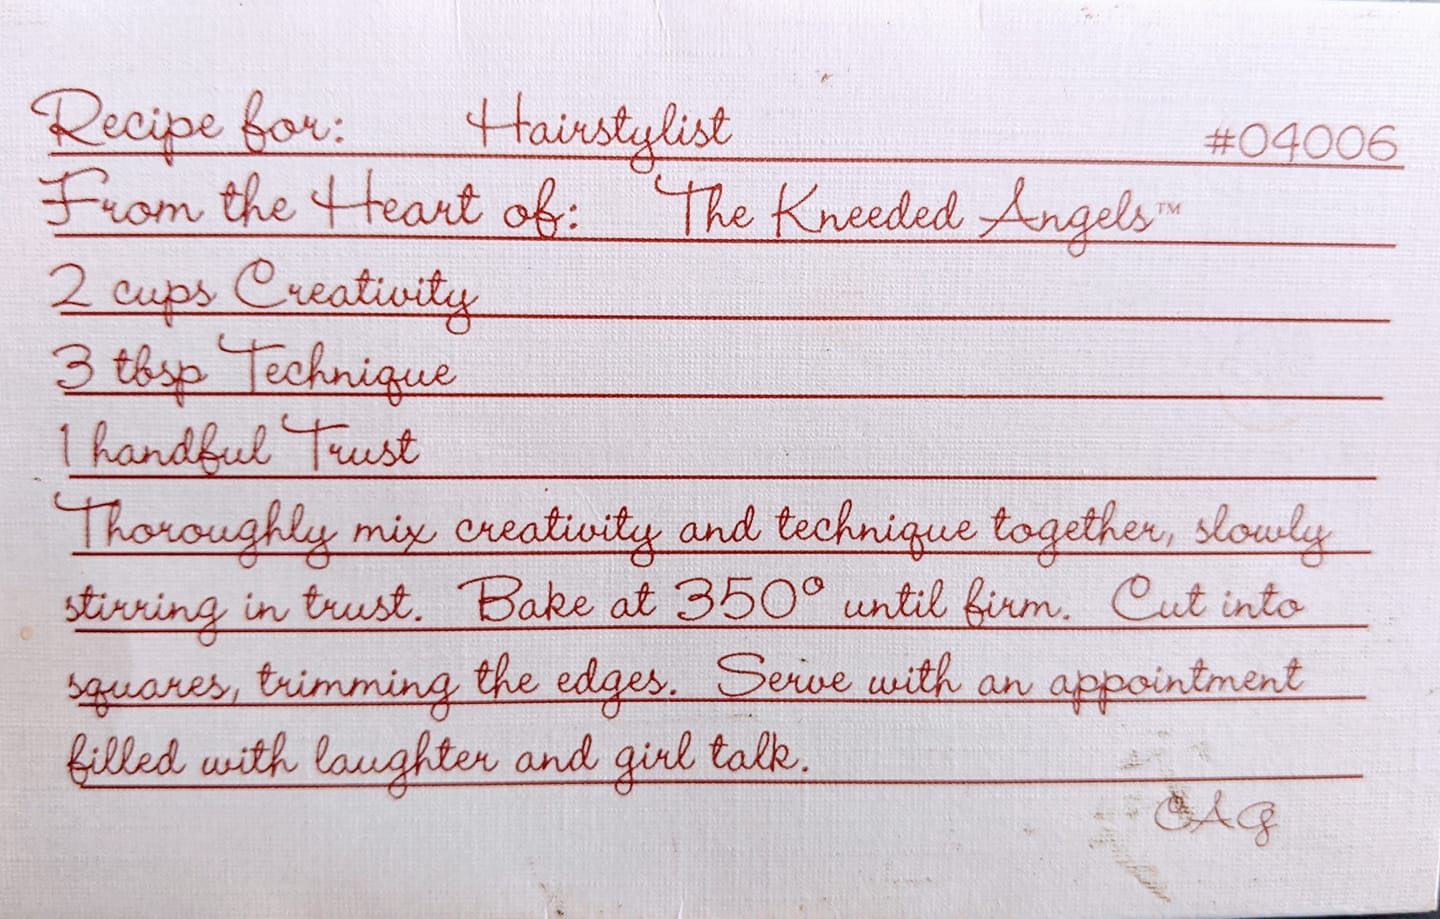 Recipe for: Hairstylist #04006
From the Heart of: The Kneeded Angels™
2 cups Creativity
3 tbsp Technique
1 handful Trust
Thoroughly mix creativity and technique together, slowly
stirring in trust. Bake at 350° until firm. Cut into
squares, trimming the edges. Serve with an appointment
filled with laughter and girl talk.
CAG